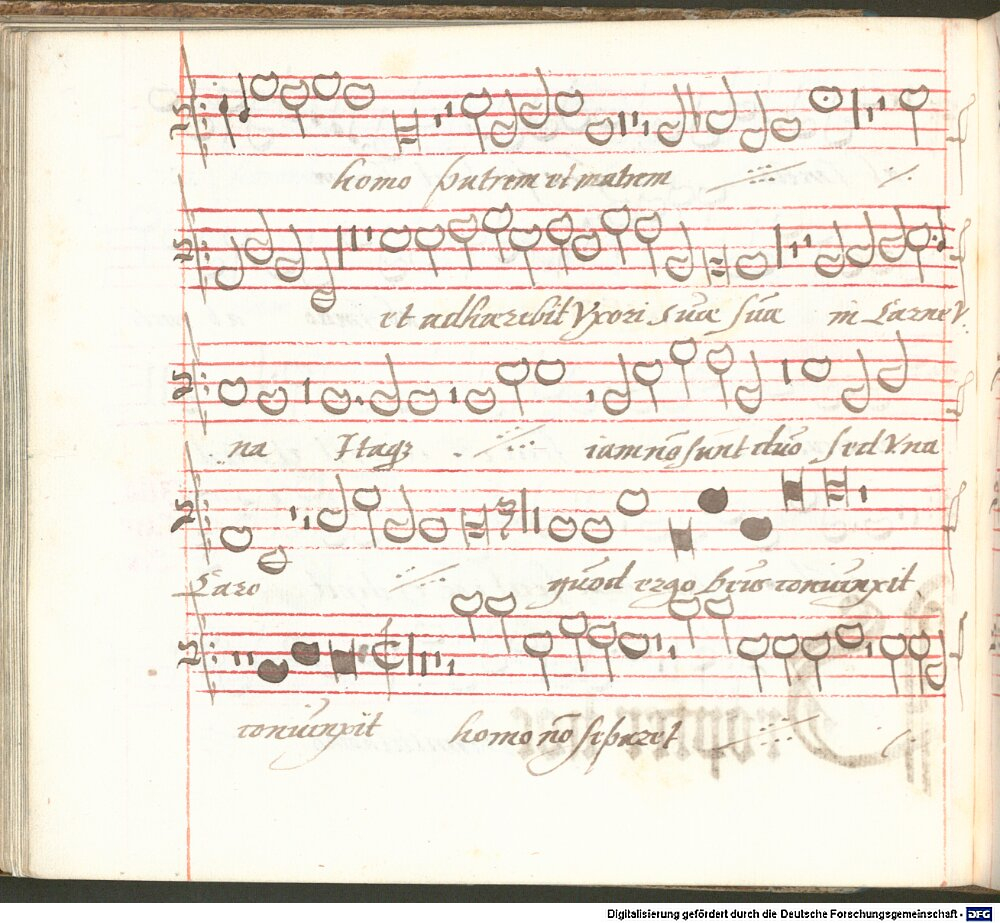 homo patrem et matrem
et adhærebit Vxori suæ suæ in Carne V
na Itaq3 iam nō sunt duo sed Vna
Caro quod ergo Deus coniunxit
coniunxit homo nō separet
Digitalisierung gefördert durch die Deutsche Forschungsgemeinschaft - DFG